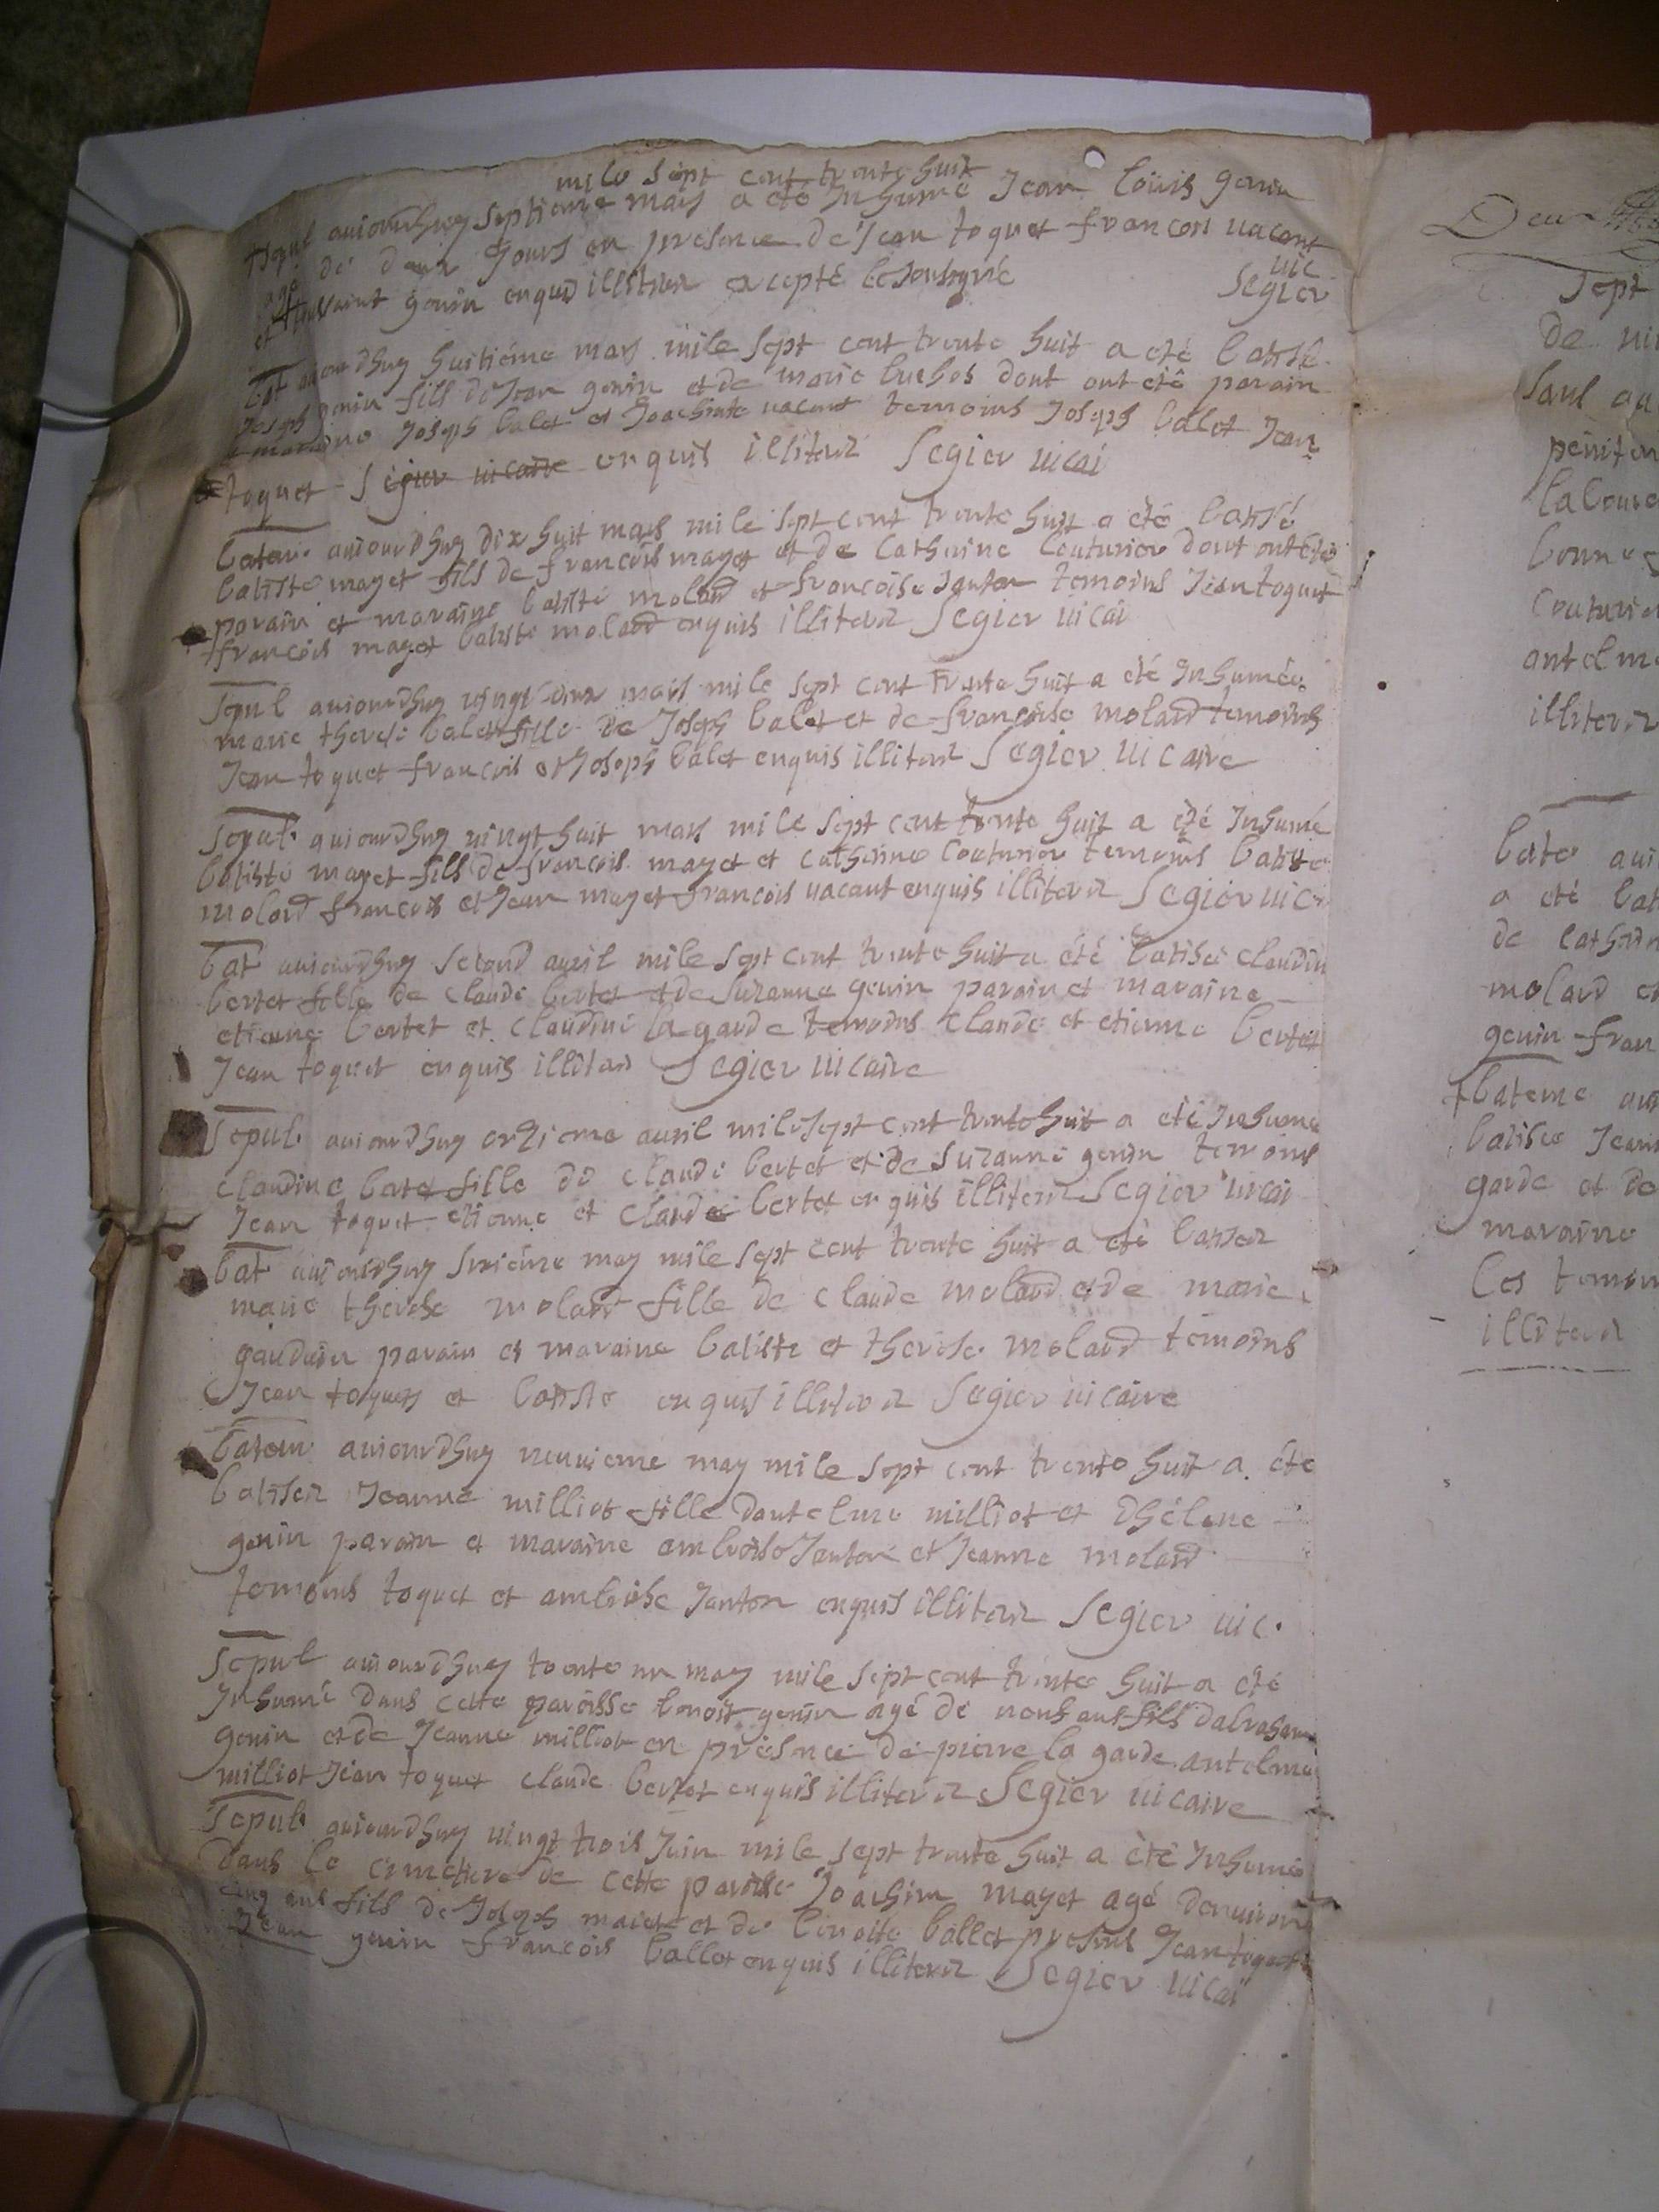 mile sept cent trente huit
Sepul aujourdhuy septieme mars a eté Inhumé Jean loüis genin
agé de deux Jours en presence de Jean toquet francois vacant
et genin enquis illiterez excepté le soubsigné Segier vic
bat aujourdhuy huitiéme mars mile sept cent trente huit a eté batisé
Joseph genin fils de Jean genin et de marie dont ont eté parain
et maraine Joseph balet et vacant temoins Joseph balet Jean
toquet Segier vicaire enquis illiterez Segier vicai
batem aujourdhuy dix huit mars mile sept cent trente huit a eté batisé
batiste mayet fils de francois mayet et de Catherine Couturier dont ont été
parain et maraine batiste molard et francoise Janton temoins Jean toquet
francois mayet batiste molard enquis illiterez Segier vicai
Sepul aujourdhuy vingt deux mars mile sept cent trente huit a eté Inhumée
marie therese balet fille de Joseph balet et de francoise molard temoins
Jean toquet francois et Joseph balet enquis illiterez Segier vicaire
Sepul aujourdhuy vingt huit mars mile sept cent trente huit a eté Inhumé
batiste mayet fils de francois mayet et catherine Couturier temoins batiste
molard francois et Jean mayet francois vacant enquis illiterez Segier vic
bat aujourdhuy second avril mile sept cent trente huit a été batisée claudin
bertet fille de claude bertet et de Suzanne genin parain et maraine
etienne bertet et claudine la garde temoins claude et etienne bertet
Jean toquet enquis illiterez Segier vicaire
Sepul aujourdhuy onzieme avril mile sept cent trente huit a eté Inhumé
claudine bertet fille de claude bertet et de Suzanne genin temoins
Jean toquet etienne et claude bertet enquis illiterez Segier vicai
bat aujourdhuy sixiéme may mile sept cent trente huit a eté batisez
marie therese molard fille de claude molard et de marie
parain et maraine batiste et therese molard temoins
Jean toquet et batiste enquis illiterez Segier vicaire
batem aujourdhuy neuvieme may mile sept cent trente huit a eté
batisez Jeanne milliot fille dantelme milliot et dhélene
genin parain et maraine ambroise Janton et Jeanne molard
temoins toquet et ambroise Janton enquis illiterez Segier vic.
Sepul aujourdhuy trente un may mile sept cent trente huit a eté
Inhumé dans cette paroisse benoit genin agé de neuf ans fils dabraham
genin et de Jeanne milliot en présence de pierre la garde antelme
milliot Jean toquet claude bertet enquis illiterez Segier vicaire
Sepul aujourdhuy vingt trois Juin mile sept trente huit a èté Inhumé
dans le cimetiere de cette paroisse Joachim mayet agé denviron
cinq ans fils de Joseph maiet et de benoite ballet presens Jean toquet
Jean genin francois ballet enquis illiterez Segier vicai
Sept
de
peniten
couturier
antelme
illiterez
a eté bat
de cathrin
molard et
genin fran
bateme auj
batisee Jean
garde et de
maraine
les temoin
illiterez